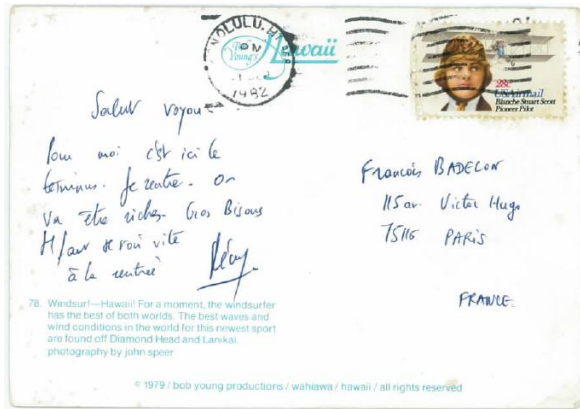 HONOLULU, HI
PM
1982
Bob Young's
Hawaii
28c
USAirmail
Blanche Stuart Scott
Pioneer Pilot
Salut voyou
Pour moi c'est ici le
terminus. Je rentre. On
va être riches. Gros Bisous
Il faut se voir vite
à la rentrée
Rémy
François BADELON
115 av. Victor Hugo
75116 PARIS
FRANCE
78. Windsurf—Hawaii! For a moment, the windsurfer
has the best of both worlds. The best waves and
wind conditions in the world for this newest sport
are found off Diamond Head and Lanikai.
photography by john speer
© 1979 / bob young productions / wahiawa / hawaii / all rights reserved